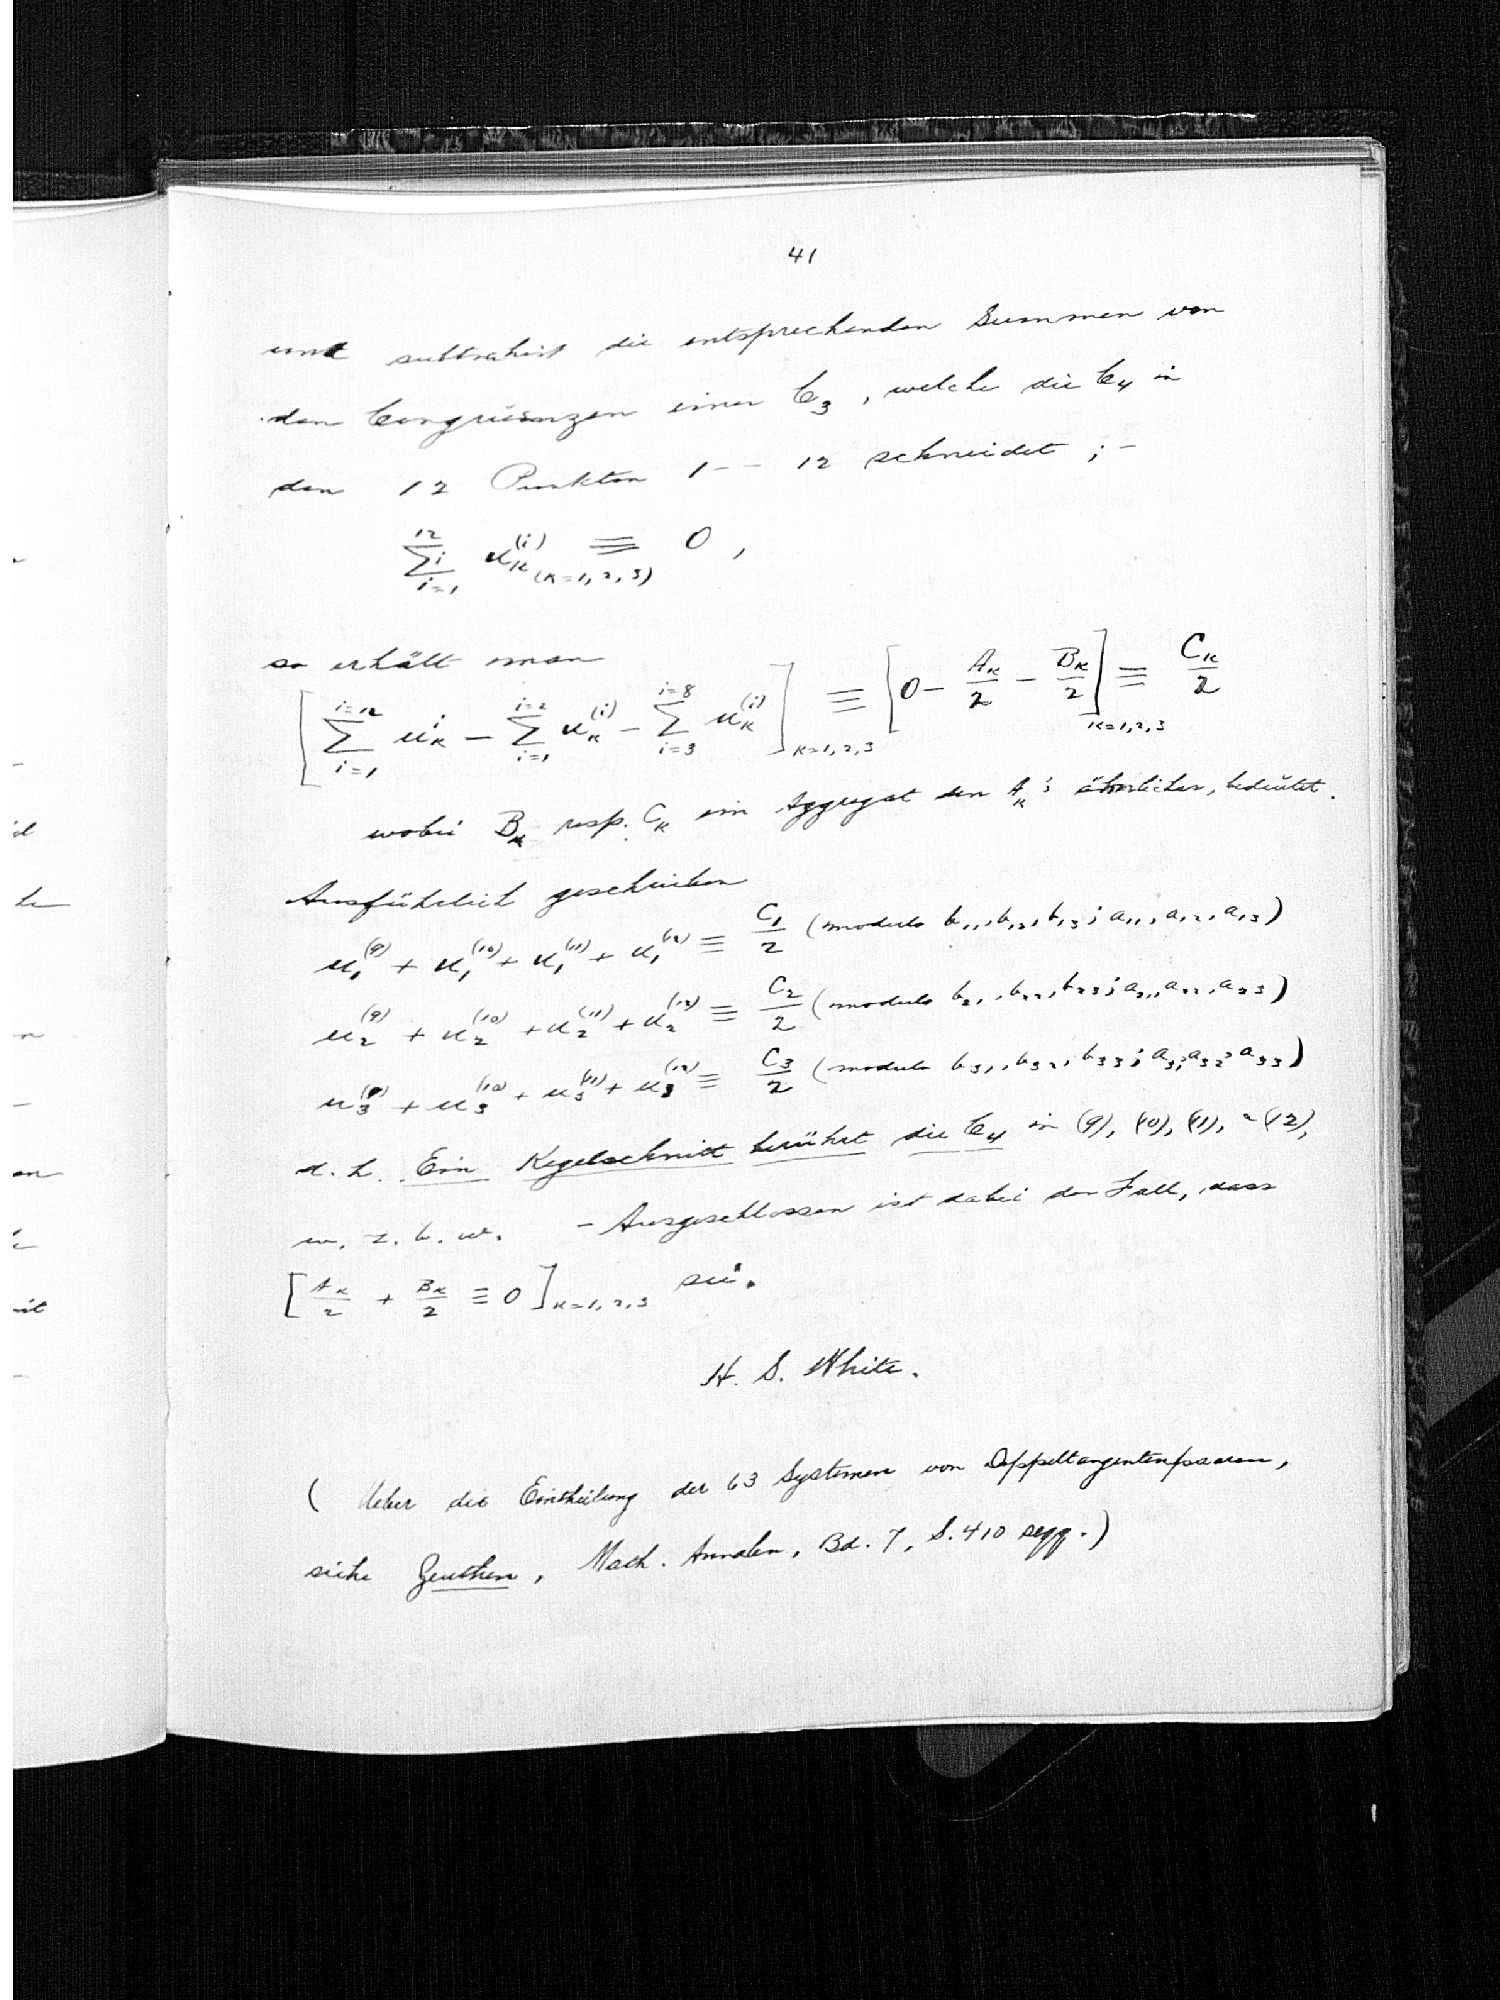 41
und subtrahirt die entsprechenden Summen von
den Congruenzen einer C₃, welche die C₄ in
den 12 Punkten 1 -- 12 schneidet ; –
\sum_{i=1}^{12} i u_κ^{(i)} ≡ 0 , (κ=1,2,3)
so erhält man
[ \sum_{i=1}^{i=12} u_κ^{i} – \sum_{i=1}^{i=2} u_κ^{(i)} – \sum_{i=3}^{i=8} u_κ^{(i)} ]_{κ=1,2,3} ≡ [ 0 – A_κ/2 – B_κ/2 ]_{κ=1,2,3} ≡ C_κ/2
wobei B_κ resp. C_κ ein Aggregat den A_κ's ähnlicher, bedeutet.
Ausführlich geschrieben
u₁^{(9)} + u₁^{(10)} + u₁^{(11)} + u₁^{(12)} ≡ C₁/2 (modulo b₁₁, b₁₂, b₁₃; a₁₁, a₁₂, a₁₃)
u₂^{(9)} + u₂^{(10)} + u₂^{(11)} + u₂^{(12)} ≡ C₂/2 (modulo b₂₁, b₂₂, b₂₃; a₂₁, a₂₂, a₂₃)
u₃^{(9)} + u₃^{(10)} + u₃^{(11)} + u₃^{(12)} ≡ C₃/2 (modulo b₃₁, b₃₂, b₃₃; a₃₁, a₃₂, a₃₃)
d. h. Ein Kegelschnitt berührt die C₄ in (9), (10), (11), (12),
w. z. b. w. – Ausgeschlossen ist dabei der Fall, dass
[ A_κ/2 + B_κ/2 ≡ 0 ]_{κ=1,2,3} sei.
H. S. White.
( Ueber die Eintheilung der 63 Systemen von Doppeltangentenpaaren,
siehe Zeuthen, Math. Annalen, Bd. 7, S. 410 seqq. )